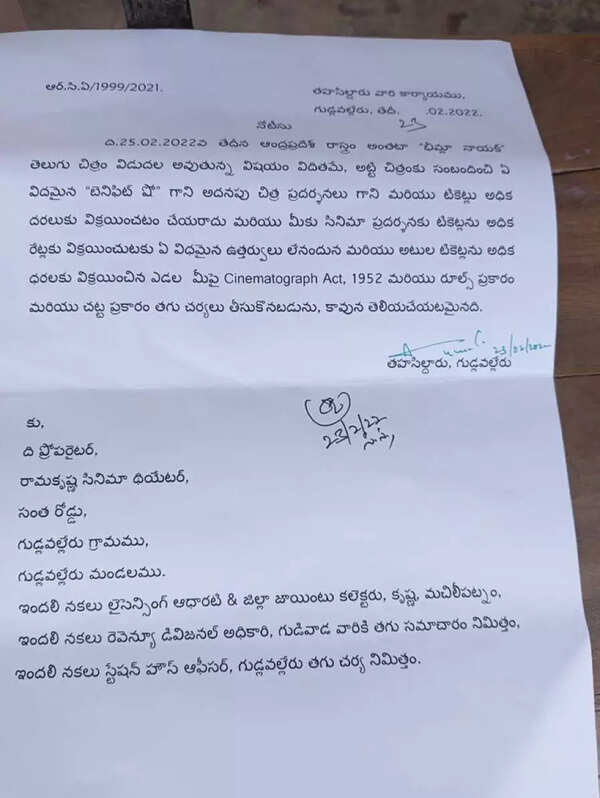 ఆర్.సి.ఏ/1999/2021.
తహసిల్దారు వారి కార్యాయము,
గుడ్లవల్లేరు, తేది, 23.02.2022.
నోటీసు
ది.25.02.2022వ తేదిన ఆంధ్రప్రదేశ్ రాష్ట్రం అంతటా "భీమ్లా నాయక్"
తెలుగు చిత్రం విడుదల అవుతున్న విషయం విదితమే, అట్టి చిత్రంకు సంబందించి ఏ
విదమైన "బెనిఫిట్ షో" గాని అదనపు చిత్ర ప్రదర్శనలు గాని మరియు టికెట్లు అధిక
దరలుకు విక్రయించటం చేయరాదు మరియు మీకు సినిమా ప్రదర్శనకు టికెట్లను అధిక
రేట్లకు విక్రయించుటకు ఏ విదమైన ఉత్తర్వులు లేనందున మరియు అటుల టికెట్లను అధిక
ధరలకు విక్రయించిన ఎడల మీపై Cinematograph Act, 1952 మరియు రూల్స్ ప్రకారం
మరియు చట్ట ప్రకారం తగు చర్యలు తీసుకొనబడును, కావున తెలియచేయటమైనది.
23/02/202
తహసిల్దారు, గుడ్లవల్లేరు
23/2/22
కు,
ది ప్రోపరైటర్,
రామకృష్ణ సినిమా థియేటర్,
సంత రోడ్డు,
గుడ్లవల్లేరు గ్రామము,
గుడ్లవల్లేరు మండలము.
ఇందలి నకలు లైసెన్సింగ్ ఆధారటి & జిల్లా జాయింటు కలెక్టరు, కృష్ణ, మచిలీపట్నం,
ఇందలి నకలు రెవెన్యూ డివిజనల్ అధికారి, గుడివాడ వారికి తగు సమాచారం నిమిత్తం,
ఇందలి నకలు స్టేషన్ హౌస్ ఆఫీసర్, గుడ్లవల్లేరు తగు చర్య నిమిత్తం.